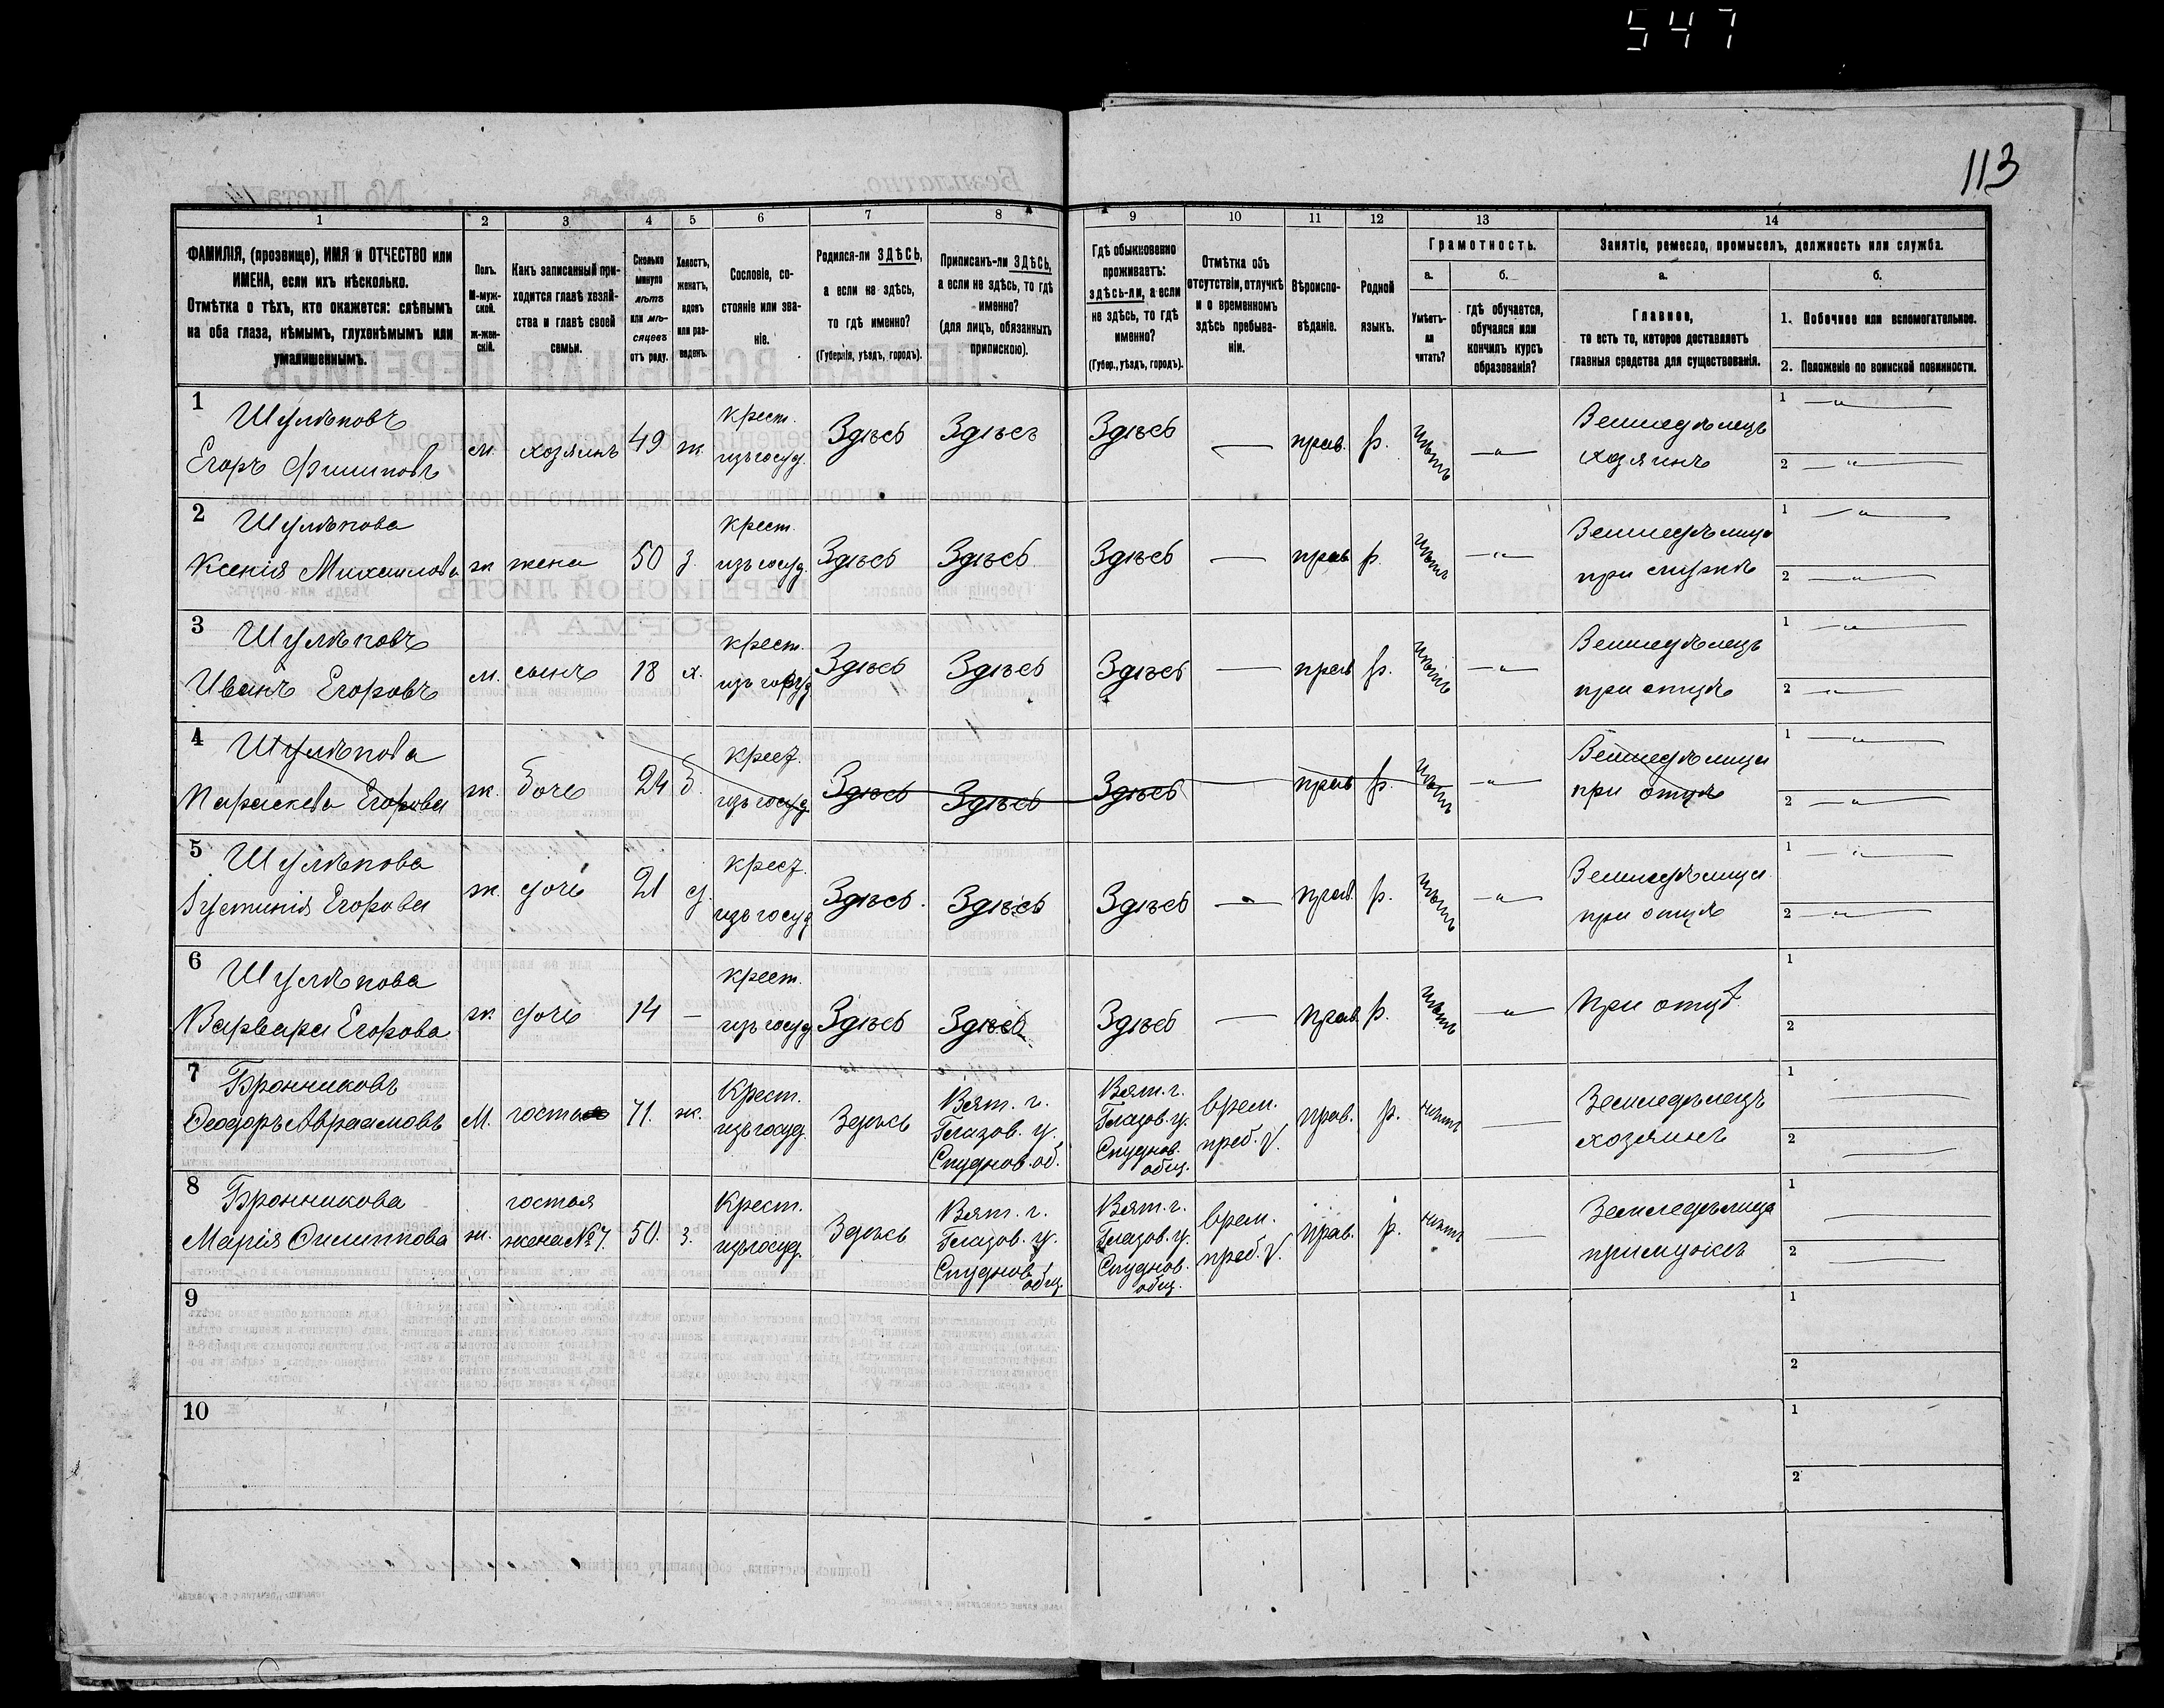 547
113
1 2 3 4 5 6 7 8 9 10 11 12 13 14
ФАМИЛІЯ, (прозвище), ИМЯ и ОТЧЕСТВО или
ИМЕНА, если ихъ нѣсколько.
Отмѣтка о тѣхъ, кто окажется: слѣпымъ
на оба глаза, нѣмымъ, глухонѣмымъ или
умалишеннымъ.
Полъ.
М-муж-
ской.
Ж-жен-
скій.
Какъ записанный при-
ходится главѣ хозяй-
ства и главѣ своей
семьи.
Сколько
минуло
лѣтъ
или мѣ-
сяцевъ
отъ роду.
Холостъ,
женатъ,
вдовъ
или раз-
веденъ.
Сословіе, со-
стояніе или зва-
ніе.
Родился-ли ЗДѢСЬ,
а если не здѣсь,
то гдѣ именно?
(Губернія, уѣздъ, городъ).
Приписанъ-ли ЗДѢСЬ,
а если не здѣсь, то гдѣ
именно?
(для лицъ, обязанныхъ
припискою).
Гдѣ обыкновенно
проживаетъ:
здѣсь-ли, а если
не здѣсь, то гдѣ
именно?
(Губер., уѣздъ, городъ).
Отмѣтка объ
отсутствіи, отлучкѣ
и о временномъ
здѣсь пребыва-
ніи.
Вѣроиспо-
вѣданіе.
Родной
языкъ.
Грамотность.
а.
Умѣетъ-
ли
читать?
б.
гдѣ обучается,
обучался или
кончилъ курсъ
образованія?
Занятіе, ремесло, промыселъ, должность или служба.
а.
Главное,
то есть то, которое доставляетъ
главныя средства для существованія.
б.
1. Побочное или вспомогательное.
2. Положеніе по воинской повинности.
1 Шулѣповъ
Егоръ Филиповъ
м. хозяинъ 49 ж.
крест.
изъ госуд.
Здѣсь Здѣсь Здѣсь — прав. р. нѣтъ — „ —
Земледѣлецъ
хозяинъ
1 — „ —
2 — „ —
2 Шулѣпова
Ксенія Михаилова
ж жена 50 з.
крест.
изъ госуд
Здѣсь Здѣсь Здѣсь — прав р. нѣтъ — „ —
Земледѣлица
при мужѣ
1 — „ —
2 — „ —
3 Шулѣповъ
Иванъ Егоровъ
м. сынъ 18 х.
крест.
изъ госуд
Здѣсь Здѣсь Здѣсь — прав р. нѣтъ — „ —
Земледѣлецъ
при отцѣ
1 — „ —
2 — „ —
4 Шулѣпова
Параскева Егорова
ж. дочь 24 д.
крест.
изъ госуд
Здѣсь Здѣсь Здѣсь — прав р. нѣтъ — „ —
Земледѣлица
при отцѣ
1 — „ —
2 — „ —
5 Шулѣпова
Іустинія Егорова
ж. дочь 21 д.
крест.
изъ госуд
Здѣсь Здѣсь Здѣсь — прав. р. нѣтъ — „ —
Земледѣлица
при отцѣ
1 — „ —
2 — „ —
6 Шулѣпова
Варвара Егорова
ж. дочь 14 —
крест.
изъ госуд
Здѣсь Здѣсь Здѣсь — прав. р. нѣтъ — „ —
При отцѣ
1
2
7 Бронниковъ
Ѳеодоръ Авраамовъ
М. гость 71. ж.
Крест.
изъ госуд.
Здѣсь
Вят. г.
Глазов. у.
об.
Вят. г.
Глазов. у.
общ.
врем.
преб. V.
прав. р. нѣтъ —
Земледѣлецъ
хозяинъ
1 —
2 —
8 Бронникова
Марія Филиппова
ж.
гостья
жена № 7.
50. з.
Крест.
изъ госуд.
Здѣсь
Вят. г.
Глазов. у.
общ.
Вят. г.
Глазов. у.
общ.
врем.
преб. V.
прав. р. нѣтъ —
Земледѣлица
при мужѣ
1 —
2 —
9
1
2
10
1
2